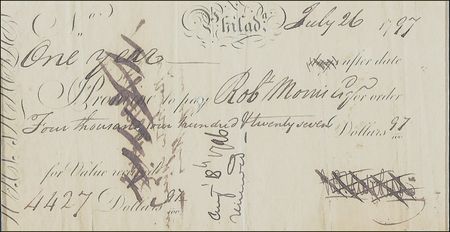 No.
Philada. July 26 1797
One year after date
I Promise to pay Robt. Morris Esqr. or order
Four thousand four hundred & twenty seven Dollars 97/100
for Value received
4427 Dollars 97/100
Augt 8th 1796